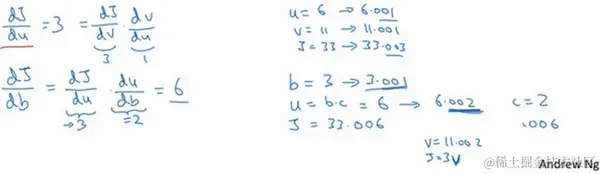 dJ/du = 3 = dJ/dv · dv/du
3 1
dJ/db = dJ/du · du/db = 6
→3 =2
u = 6 → 6.001
v = 11 → 11.001
J = 33 → 33.003
b = 3 → 3.001
u = b·c = 6 → 6.002 c = 2
J = 33.006 .006
v = 11.002
J = 3v
@稀土掘金技术社区
Andrew Ng